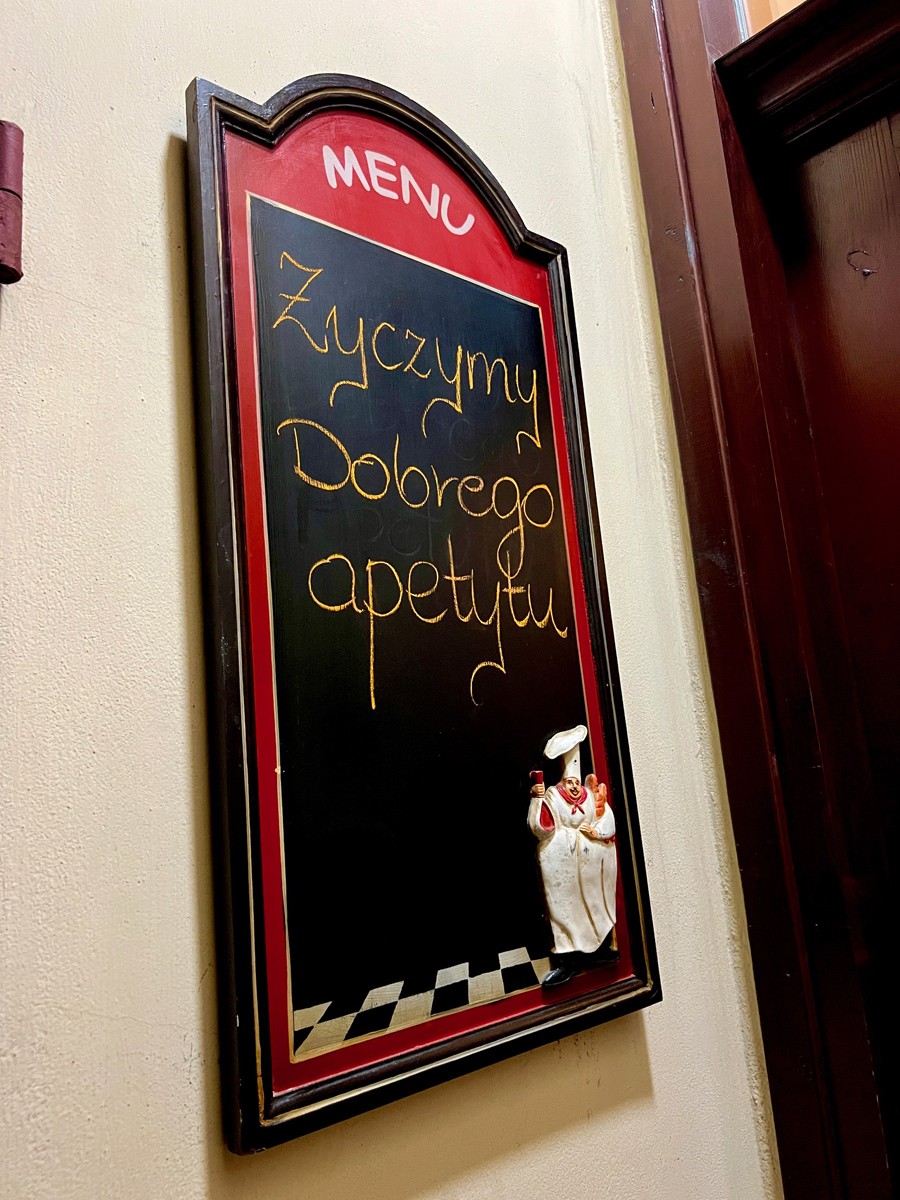 MENU
Życzymy
Dobrego
apetytu